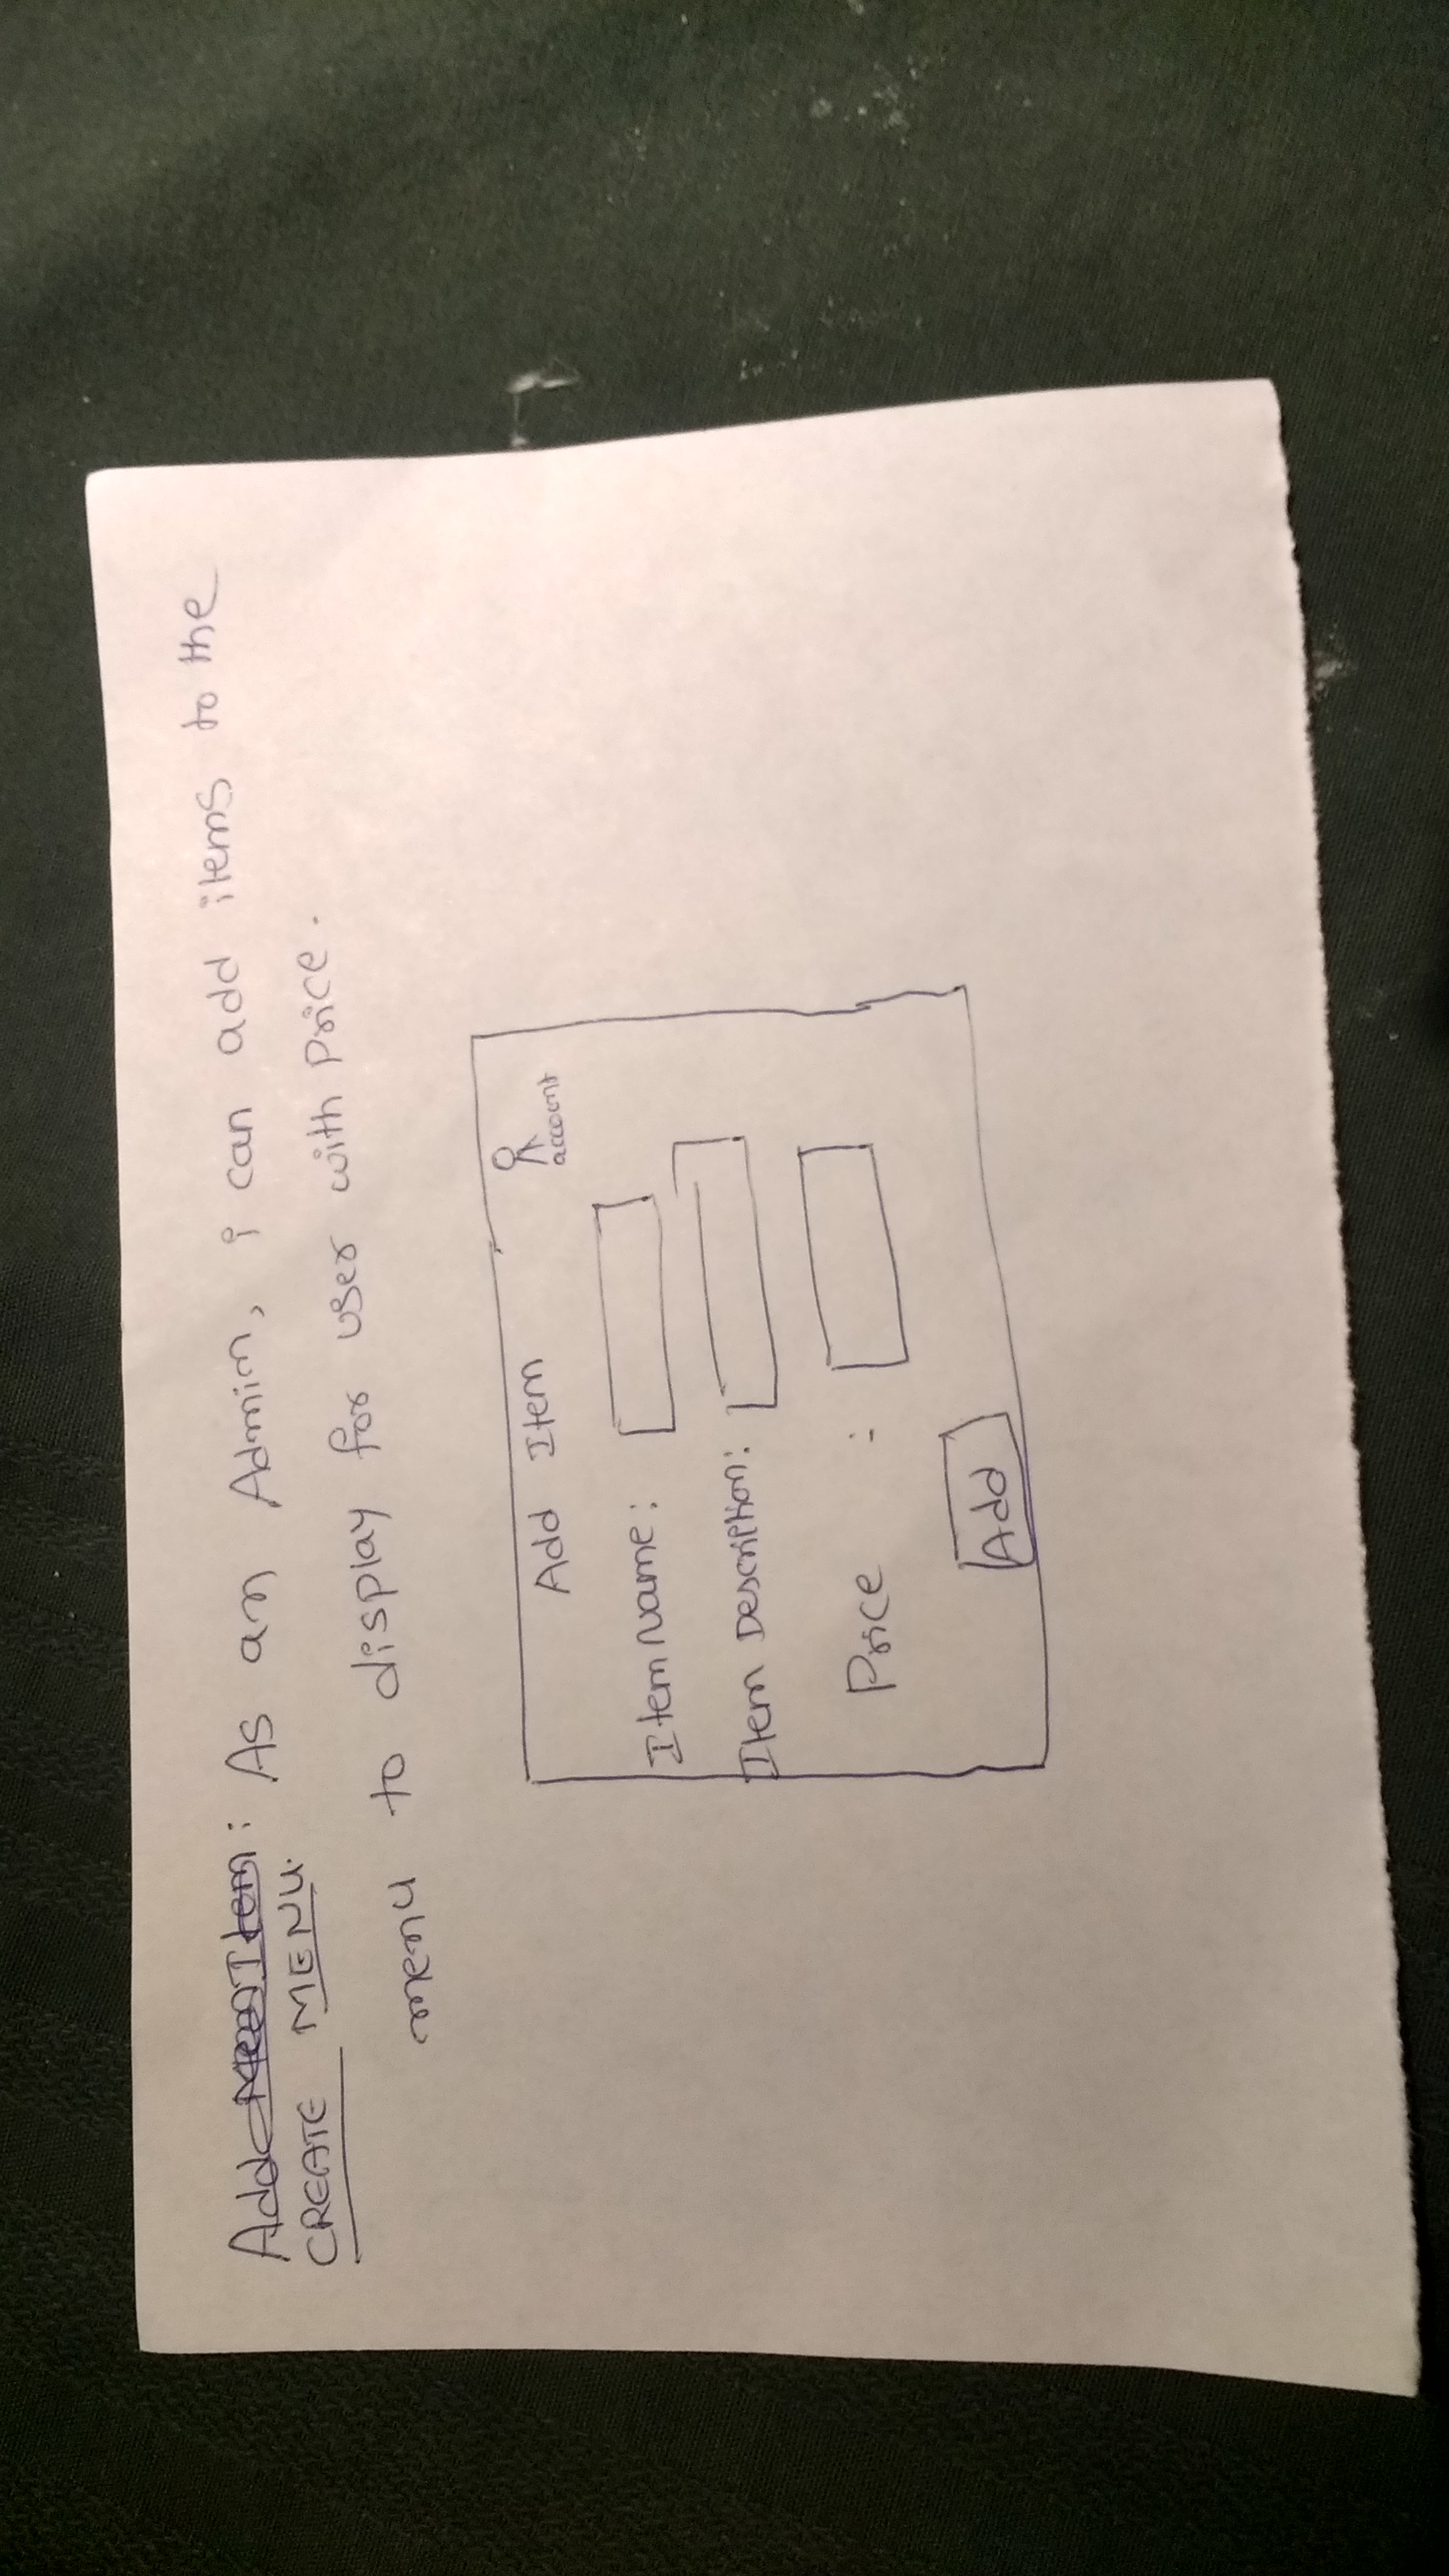 Add Item: As an Admin, i can add items to the
CREATE MENU.
menu to display for user with Price.
Add Item
account
Item Name:
Item Description:
Price :
Add